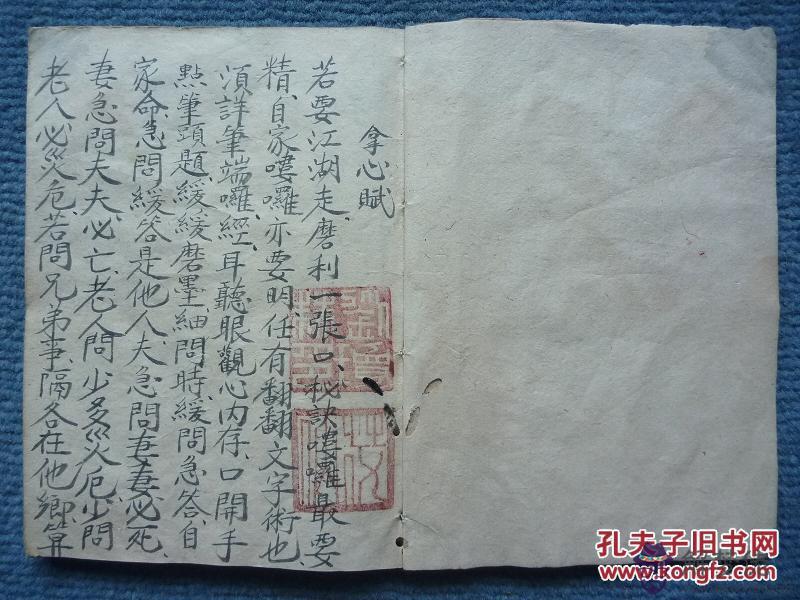 拿心賦
若要江湖走磨利一張口、秘訣嘍囉最要
精、自家嘍囉亦要明、任有翻翻文字術也、
須詳筆端囉經、耳聽眼觀心内存、口開手
點筆頭題、緩緩磨墨細問時、緩問急答、自
家命、急問緩答是他人、夫急問妻妻必死、
妻急問夫夫必亡、老人問少多災厄、少問
老人必災危、若問兄弟事、隔各在他鄉、算
孔夫子旧书网
www.kongfz.com